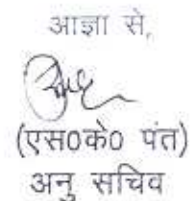 आज्ञा से,
(एस०के० पंत)
अनु सचिव